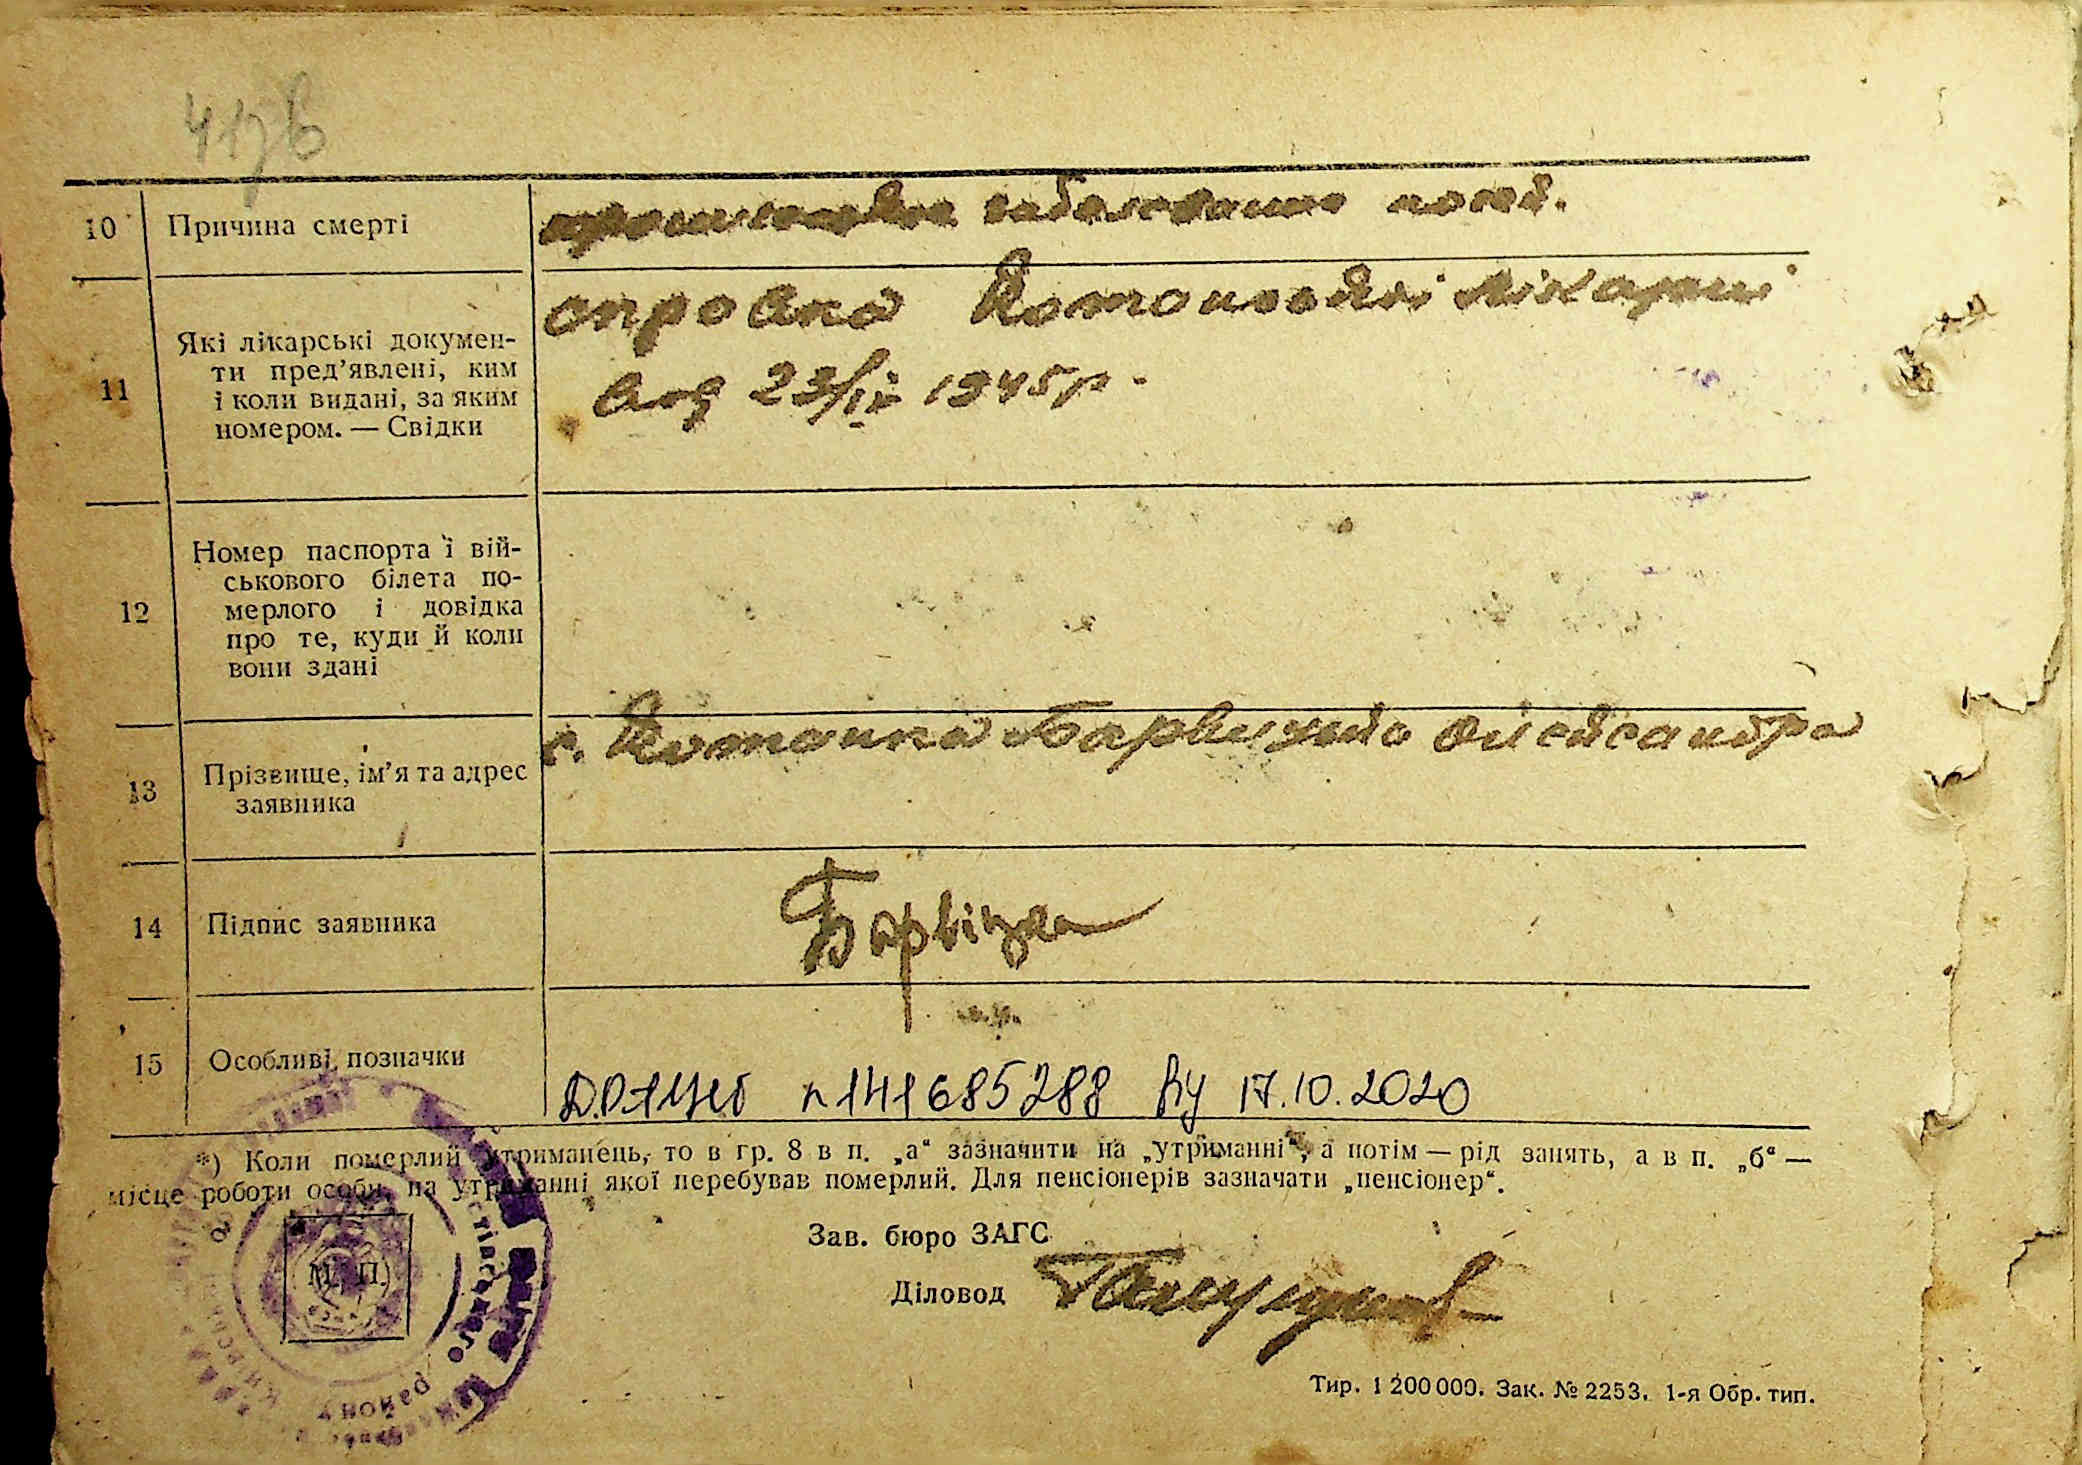 10 Причина смерті
заболевание
11 Які лікарські докумен-
ти пред’явлені, ким
і коли видані, за яким
номером. — Свідки
справка лікарні
від 23/IV 1945 р.
12 Номер паспорта і вій-
ськового білета по-
мерлого і довідка
про те, куди й коли
вони здані
13 Прізвище, ім’я та адрес
заявника
с. Александра
14 Підпис заявника
15 Особливі позначки
141685288 17.10.2020
*) Коли померлий утриманець, то в гр. 8 в п. „а“ зазначити на „утриманні“, а потім — рід занять, а в п. „б“ —
місце роботи особи, на утриманні якої перебував померлий. Для пенсіонерів зазначати „пенсіонер“.
М. П.
району
Зав. бюро ЗАГС
Діловод
Тир. 1 200 000. Зак. № 2253. 1-я Обр. тип.